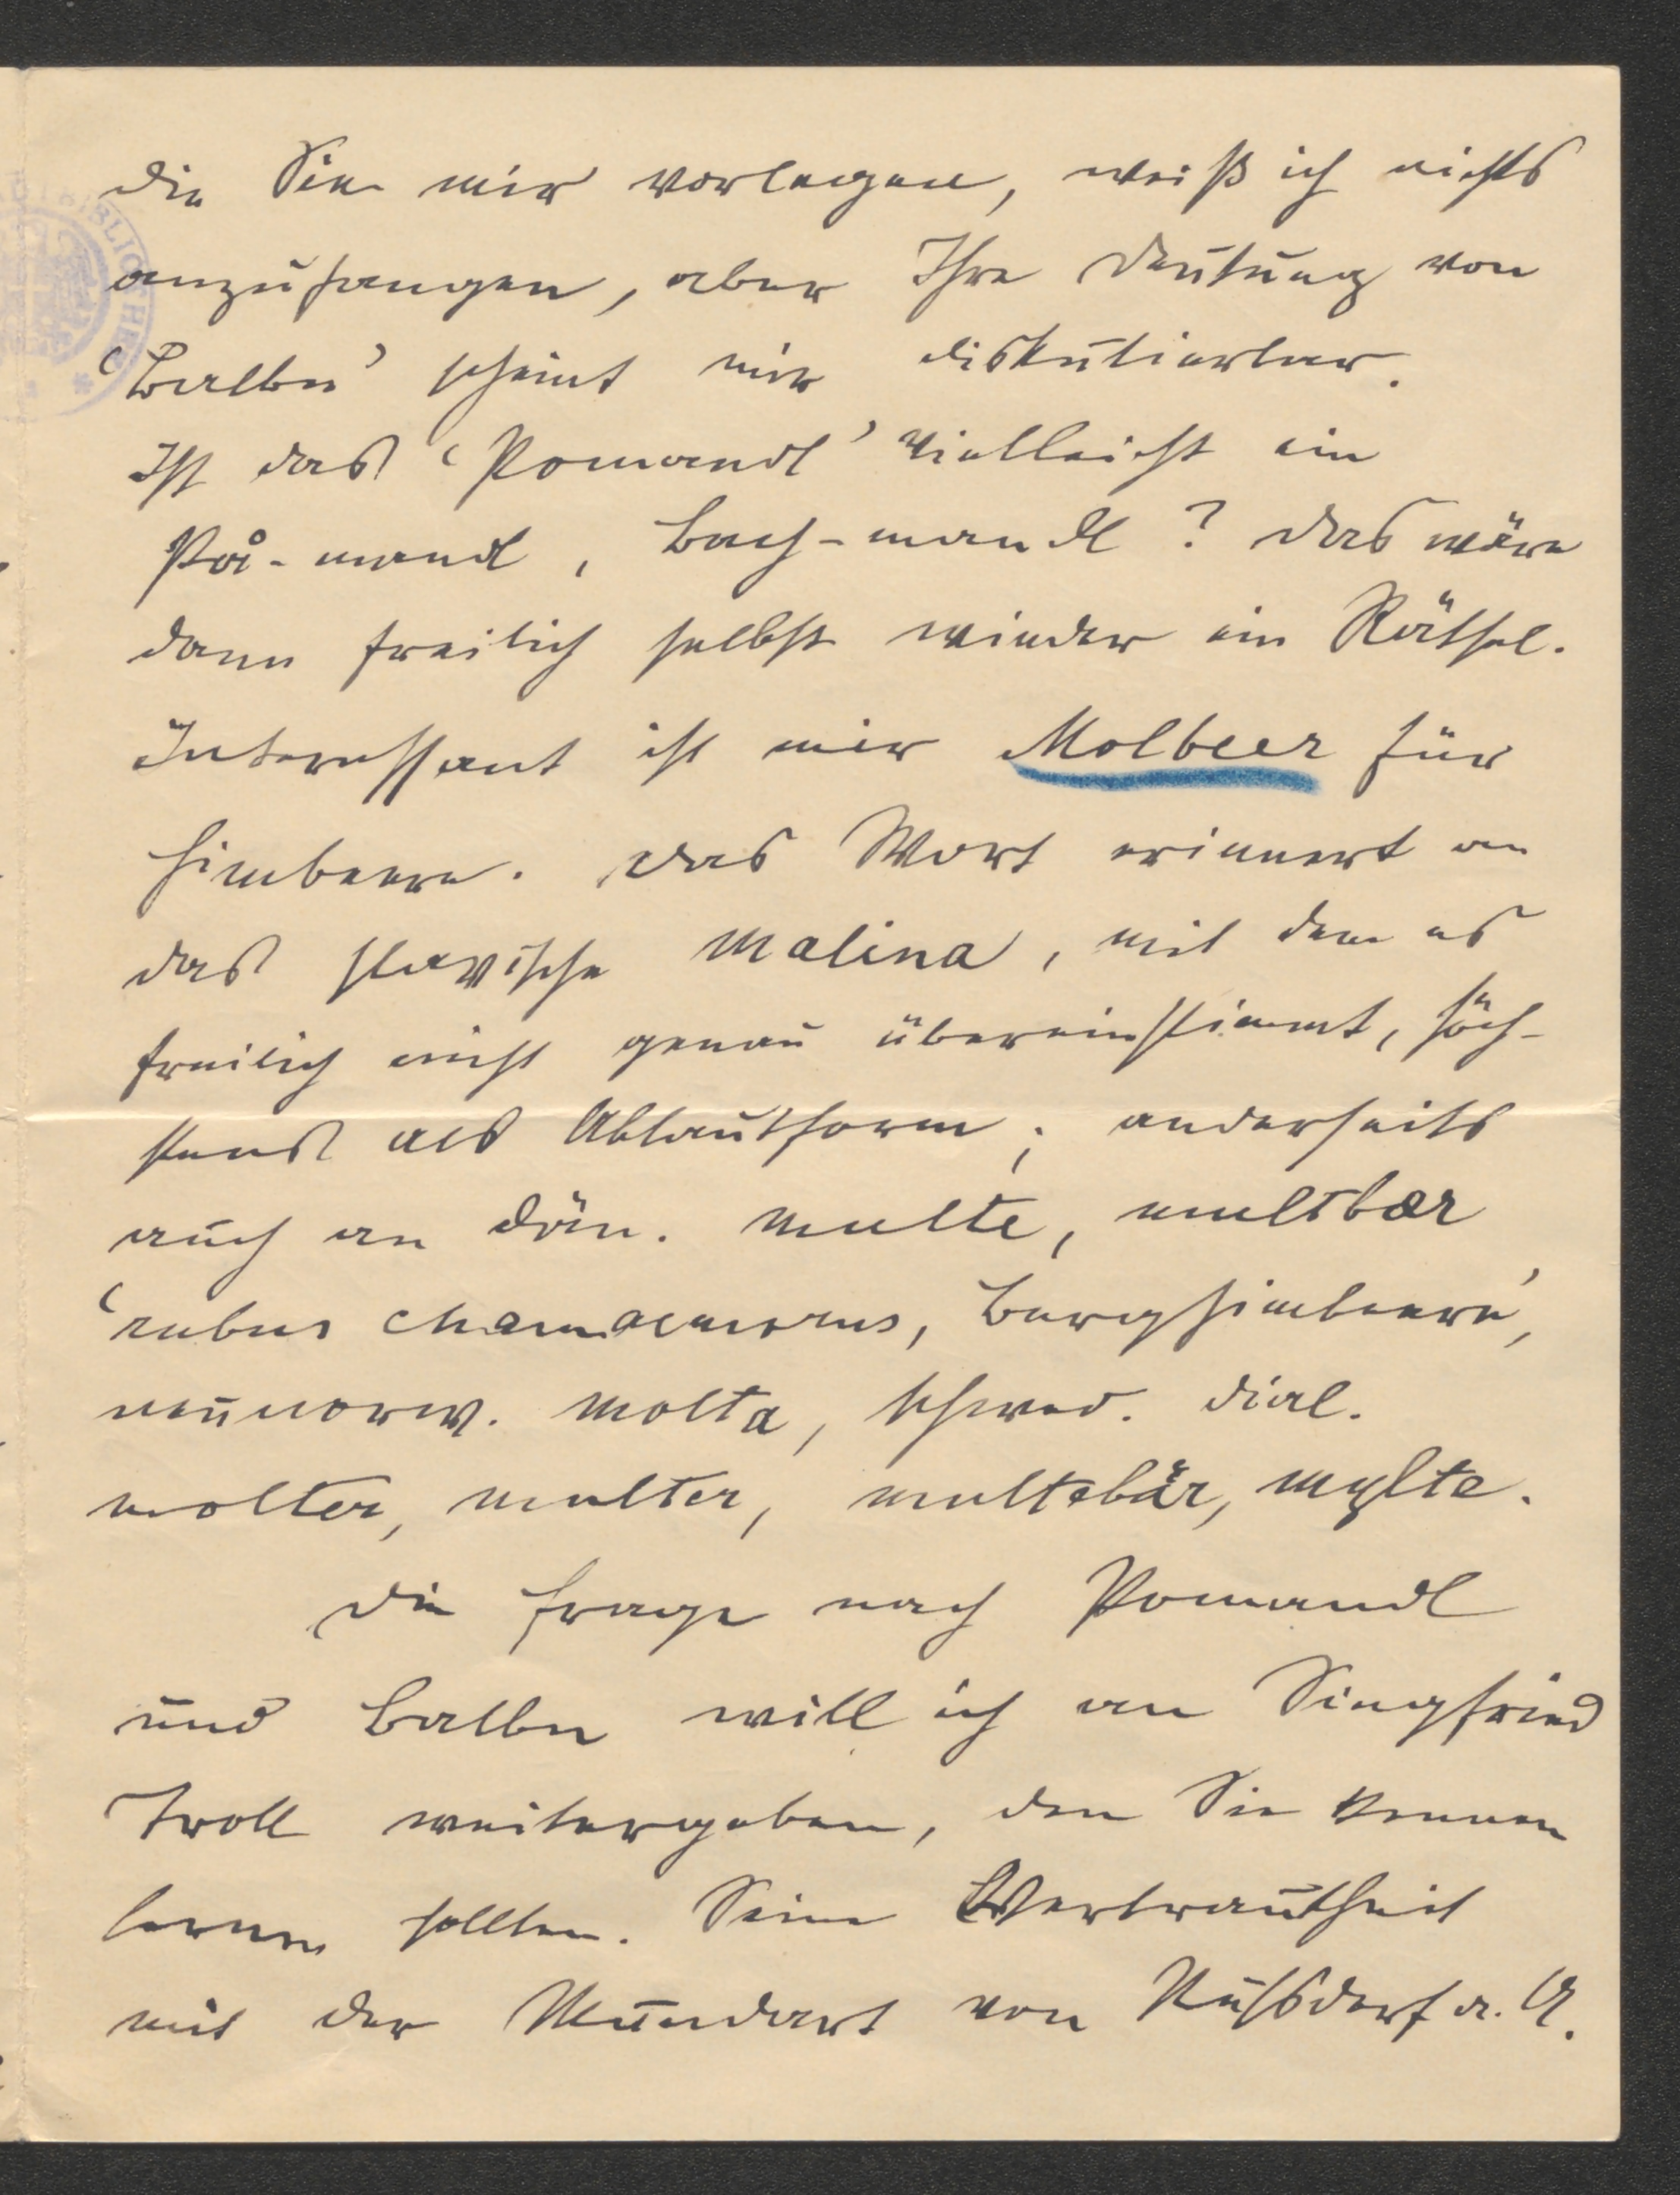 die Sie mir vorlegen, weiß ich nichts
anzufangen, aber Ihre Deutung von
‘Balbn’ scheint mir diskutierbar.
Ist das ‘Pomandl’ vielleicht ein
På-mandl, Bach-mandl? Das wäre
dann freilich selbst wieder ein Rätsel.
Interessant ist mir Molbeer für
Himbeere. Das Wort erinnert an
das slavische malina, mit dem es
freilich nicht genau übereinstimmt, höch-
stens als Ablautform; anderseits
auch an dän. multe, multbær
‘rubus chamaemorus, Berghimbeere’,
neunorw. molta, schwed. dial.
molter, multer, multebär, mylte.
Die Frage nach Pomandl
und Balbn will ich an Siegfried
Troll weitergeben, den Sie kennen
lernen sollten. Seine Vertrautheit
mit der Mundart von Nußdorf a. A.